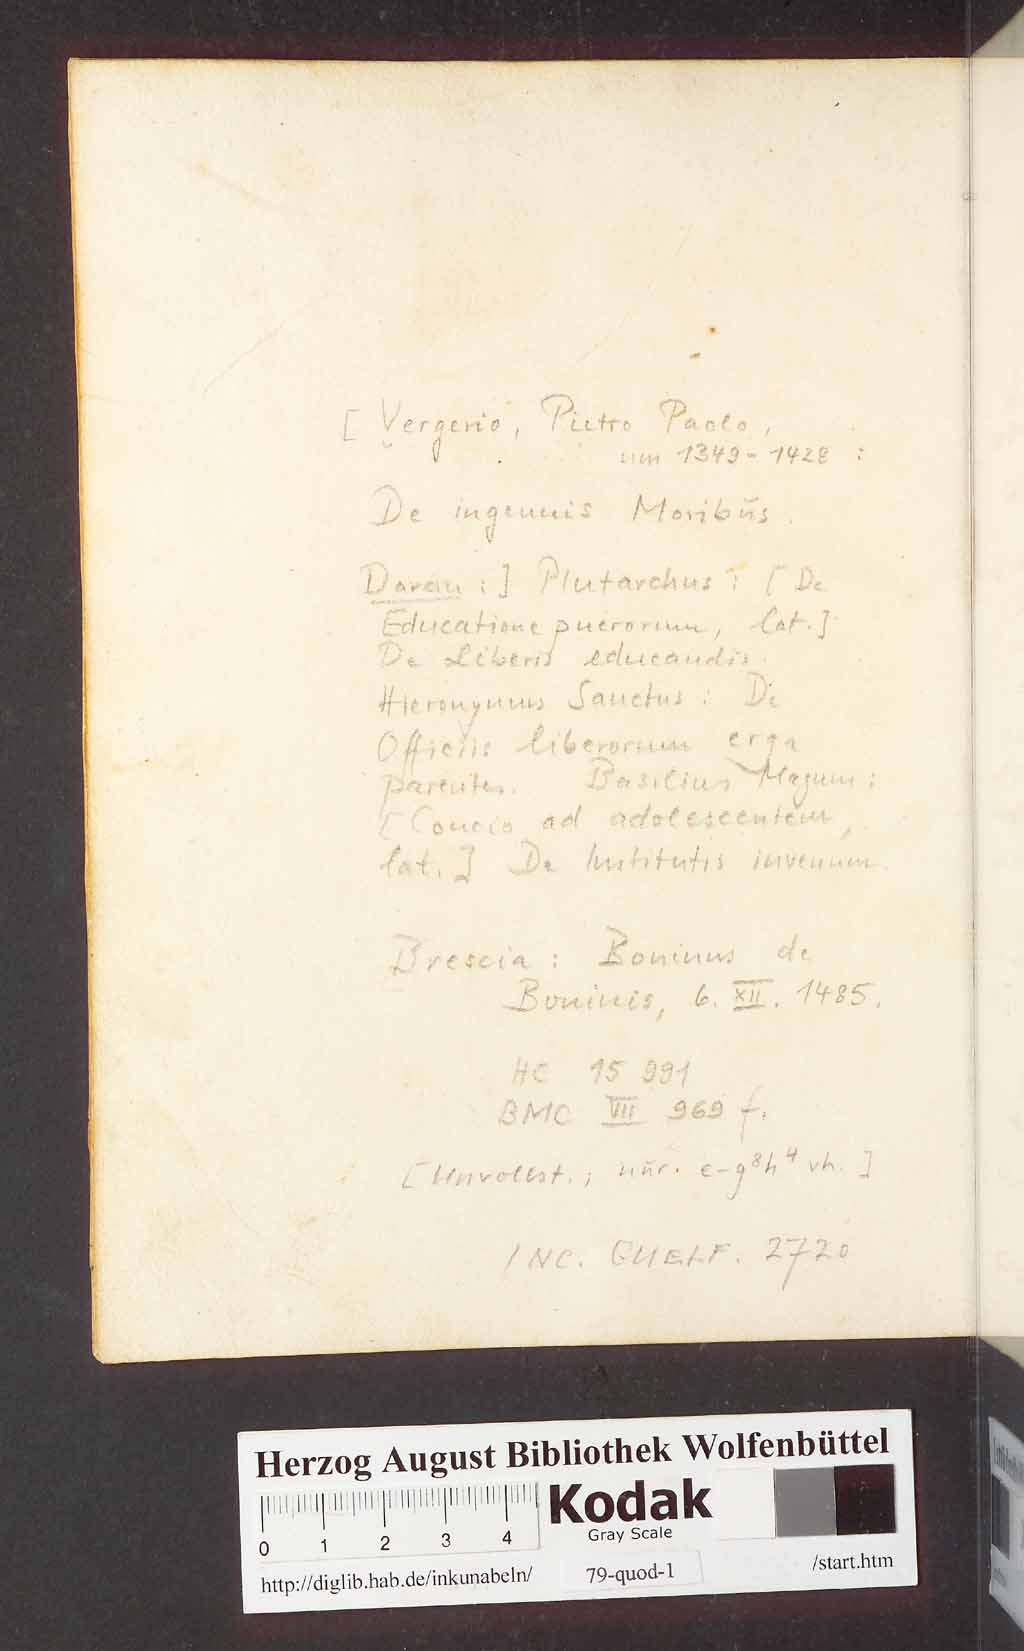 [ Vergerio, Pietro Paolo,
um 1349-1428 :
De ingenuis Moribŭs.
Daran :] Plutarchus : [ De
Educatione puerorum, lat.]
De Liberis educandis.
Hieronymus Sanctus : De
Officiis liberorum erga
parentes. Basilius Magnus :
[ Concio ad adolescentem,
lat. ] De Institutis iuvenum.
Brescia : Boninus de
Boninis, 6. XII. 1485.
HC 15 991
BMC VII 969 f.
[ Unvollst. ; nŭr. e-g⁸h⁴ vh. ]
INC. GUELF. 2720
Herzog August Bibliothek Wolfenbüttel
0 1 2 3 4
Kodak
Gray Scale
http://diglib.hab.de/inkunabeln/ 79-quod-1 /start.htm